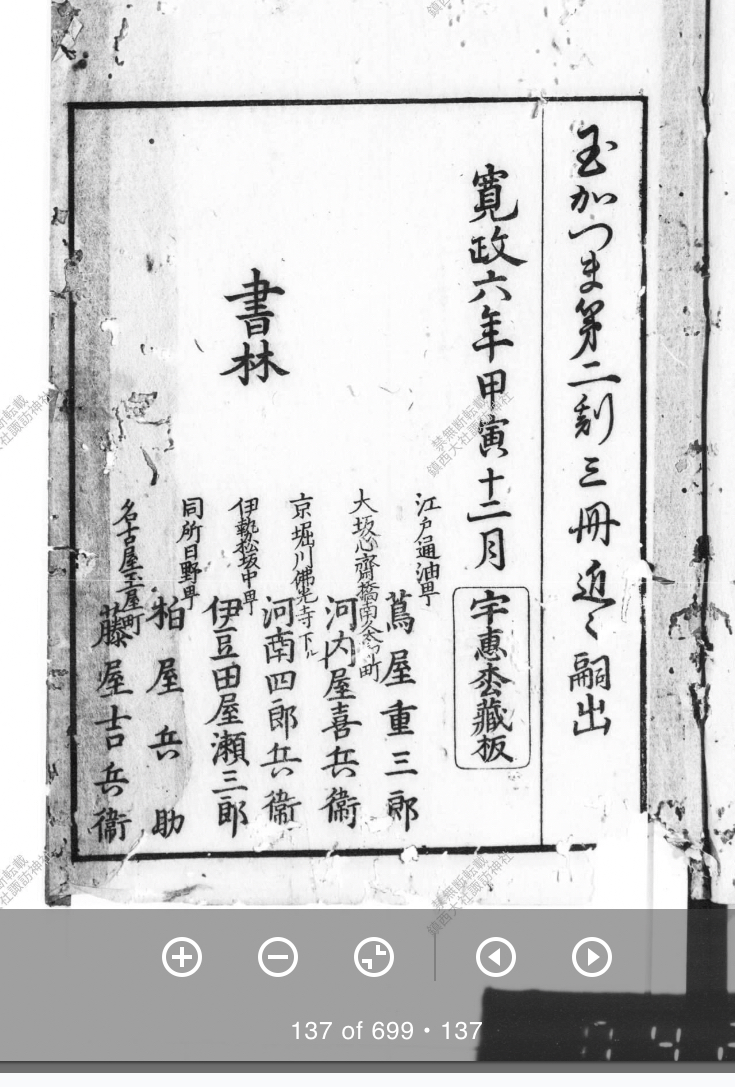 玉かつま第二刻三冊近々嗣出
寛政六年甲寅十二月
宇恵枩蔵板
江戸通油町
蔦屋重三郎
大坂心斎橋南久太郎町
河内屋喜兵衛
京堀川佛光寺下ル
河南四郎兵衛
伊勢松坂中町
伊豆田屋瀬三郎
同所日野町
柏屋兵助
名古屋玉屋町
藤屋吉兵衛
書林
禁無断転載
鎮西大社諏訪神社
137 of 699 • 137